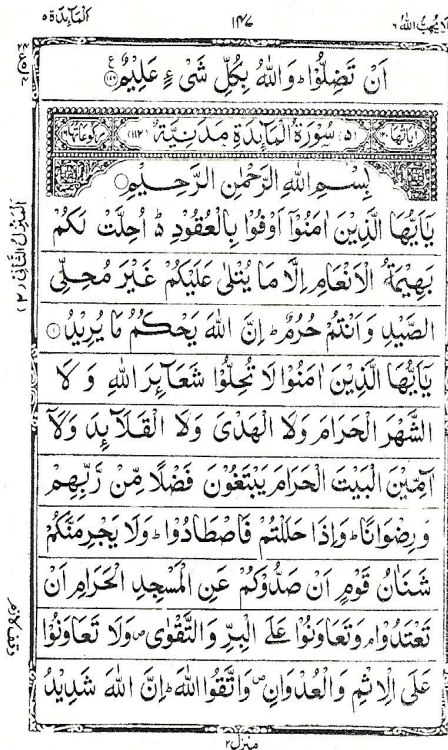 لا یحب اللہ ۶ ۱۴۷ المآئدۃ ۵
اَنْ تَضِلُّوْا ؕ وَاللّٰهُ بِكُلِّ شَیْ ءٍ عَلِیْمٌ ۟
(۵) سُوْرَةُ الْمَآئِدَةِ مَدَنِیَّةٌ (۱۱۲)
بِسْمِ اللّٰهِ الرَّحْمٰنِ الرَّحِیْمِ ۟
یٰۤاَیُّهَا الَّذِیْنَ اٰمَنُوْۤا اَوْفُوْا بِالْعُقُوْدِ ؕ۬ اُحِلَّتْ لَكُمْ
بَهِیْمَةُ الْاَنْعَامِ اِلَّا مَا یُتْلٰی عَلَیْكُمْ غَیْرَ مُحِلِّی
الصَّیْدِ وَ اَنْتُمْ حُرُمٌ ؕ اِنَّ اللّٰهَ یَحْكُمُ مَا یُرِیْدُ ۟۱
یٰۤاَیُّهَا الَّذِیْنَ اٰمَنُوْا لَا تُحِلُّوْا شَعَآئِرَ اللّٰهِ وَ لَا
الشَّهْرَ الْحَرَامَ وَلَا الْهَدْیَ وَلَا الْقَلَآئِدَ وَلَاۤ
آٰمِّیْنَ الْبَیْتَ الْحَرَامَ یَبْتَغُوْنَ فَضْلًا مِّنْ رَّبِّهِمْ
وَ رِضْوَانًا ؕ وَاِذَا حَلَلْتُمْ فَاصْطَادُوْا ؕ وَلَا یَجْرِمَنَّكُمْ
شَنَاٰنُ قَوْمٍ اَنْ صَدُّوْكُمْ عَنِ الْمَسْجِدِ الْحَرَامِ اَنْ
تَعْتَدُوْا ۘ وَ تَعَاوَنُوْا عَلَی الْبِرِّ وَالتَّقْوٰی ۪ وَلَا تَعَاوَنُوْا
عَلَی الْاِثْمِ وَالْعُدْوَانِ ۪ وَاتَّقُوا اللّٰهَ ؕ اِنَّ اللّٰهَ شَدِیْدُ
منزل ۲
المنزل الثانی (۲)
وقف لازم